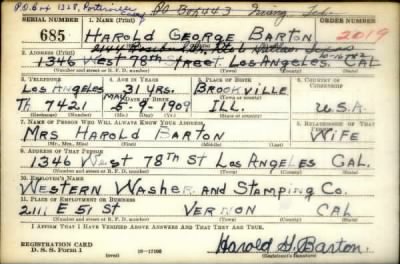 P.O. Box 1328, Porterville PO Box 443 Irving Tex.
SERIAL NUMBER 1. NAME (Print) ORDER NUMBER
685 HAROLD GEORGE BARTON 2019
(First) (Middle) (Last)
2. ADDRESS (Print)
1346 WEST 78th STREET. LOS ANGELES. CAL
(Number and street or R. F. D. number) (Town) (County) (State)
3. TELEPHONE 4. AGE IN YEARS 5. PLACE OF BIRTH 6. COUNTRY OF CITIZENSHIP
LOS ANGELES 31 YRS. BROOKVILLE
DATE OF BIRTH (Town or county)
TH 7421 MAY 5-9-1909 ILL. U.S.A.
(Exchange) (Number) (Mo.) (Day) (Yr.) (State or country)
7. NAME OF PERSON WHO WILL ALWAYS KNOW YOUR ADDRESS 8. RELATIONSHIP OF THAT PERSON
MRS HAROLD BARTON WIFE
(Mr., Mrs., Miss) (First) (Middle) (Last)
9. ADDRESS OF THAT PERSON
1346 WEST 78TH ST LOS ANGELES CAL.
(Number and street or R. F. D. number) (Town) (County) (State)
10. EMPLOYER'S NAME
WESTERN WASHER AND STAMPING CO.
11. PLACE OF EMPLOYMENT OR BUSINESS
2111 E 51 ST VERNON CAL
(Number and street or R. F. D. number) (Town) (County) (State)
I AFFIRM THAT I HAVE VERIFIED ABOVE ANSWERS AND THAT THEY ARE TRUE.
REGISTRATION CARD
D. S. S. Form 1 16-17105 Harold G. Barton.
(Registrant's signature)